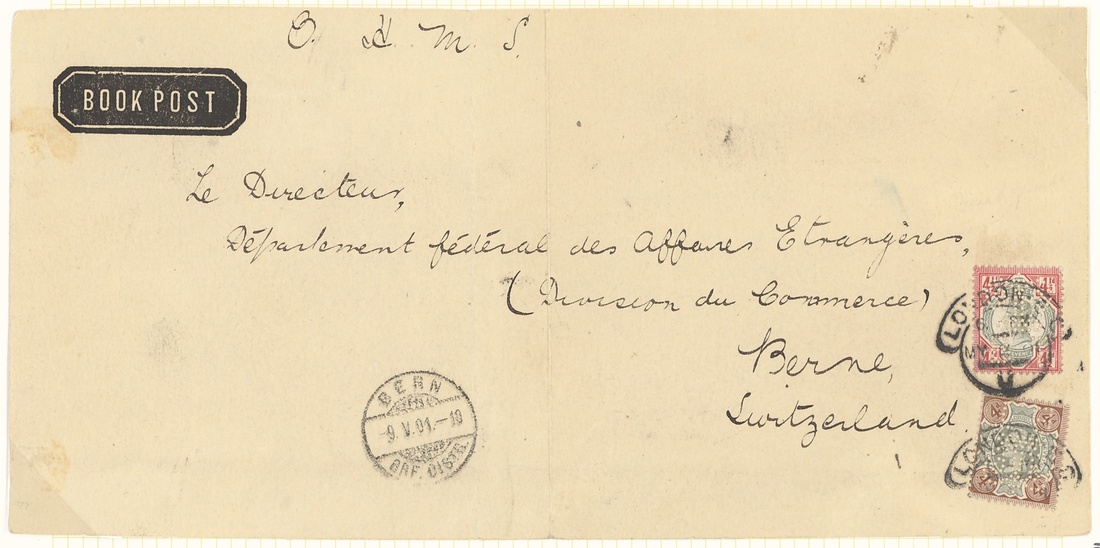 O. H. M. S.
BOOK POST
Le Directeur,
Département fédéral des Affaires Etrangères,
(Division du Commerce)
Berne,
Switzerland
BERN
-9.V.01.-10
BRF. DISTR.
4½ᵈ 4½ᵈ
LONDON
MY 01
4ᵈ 4ᵈ
LONDON